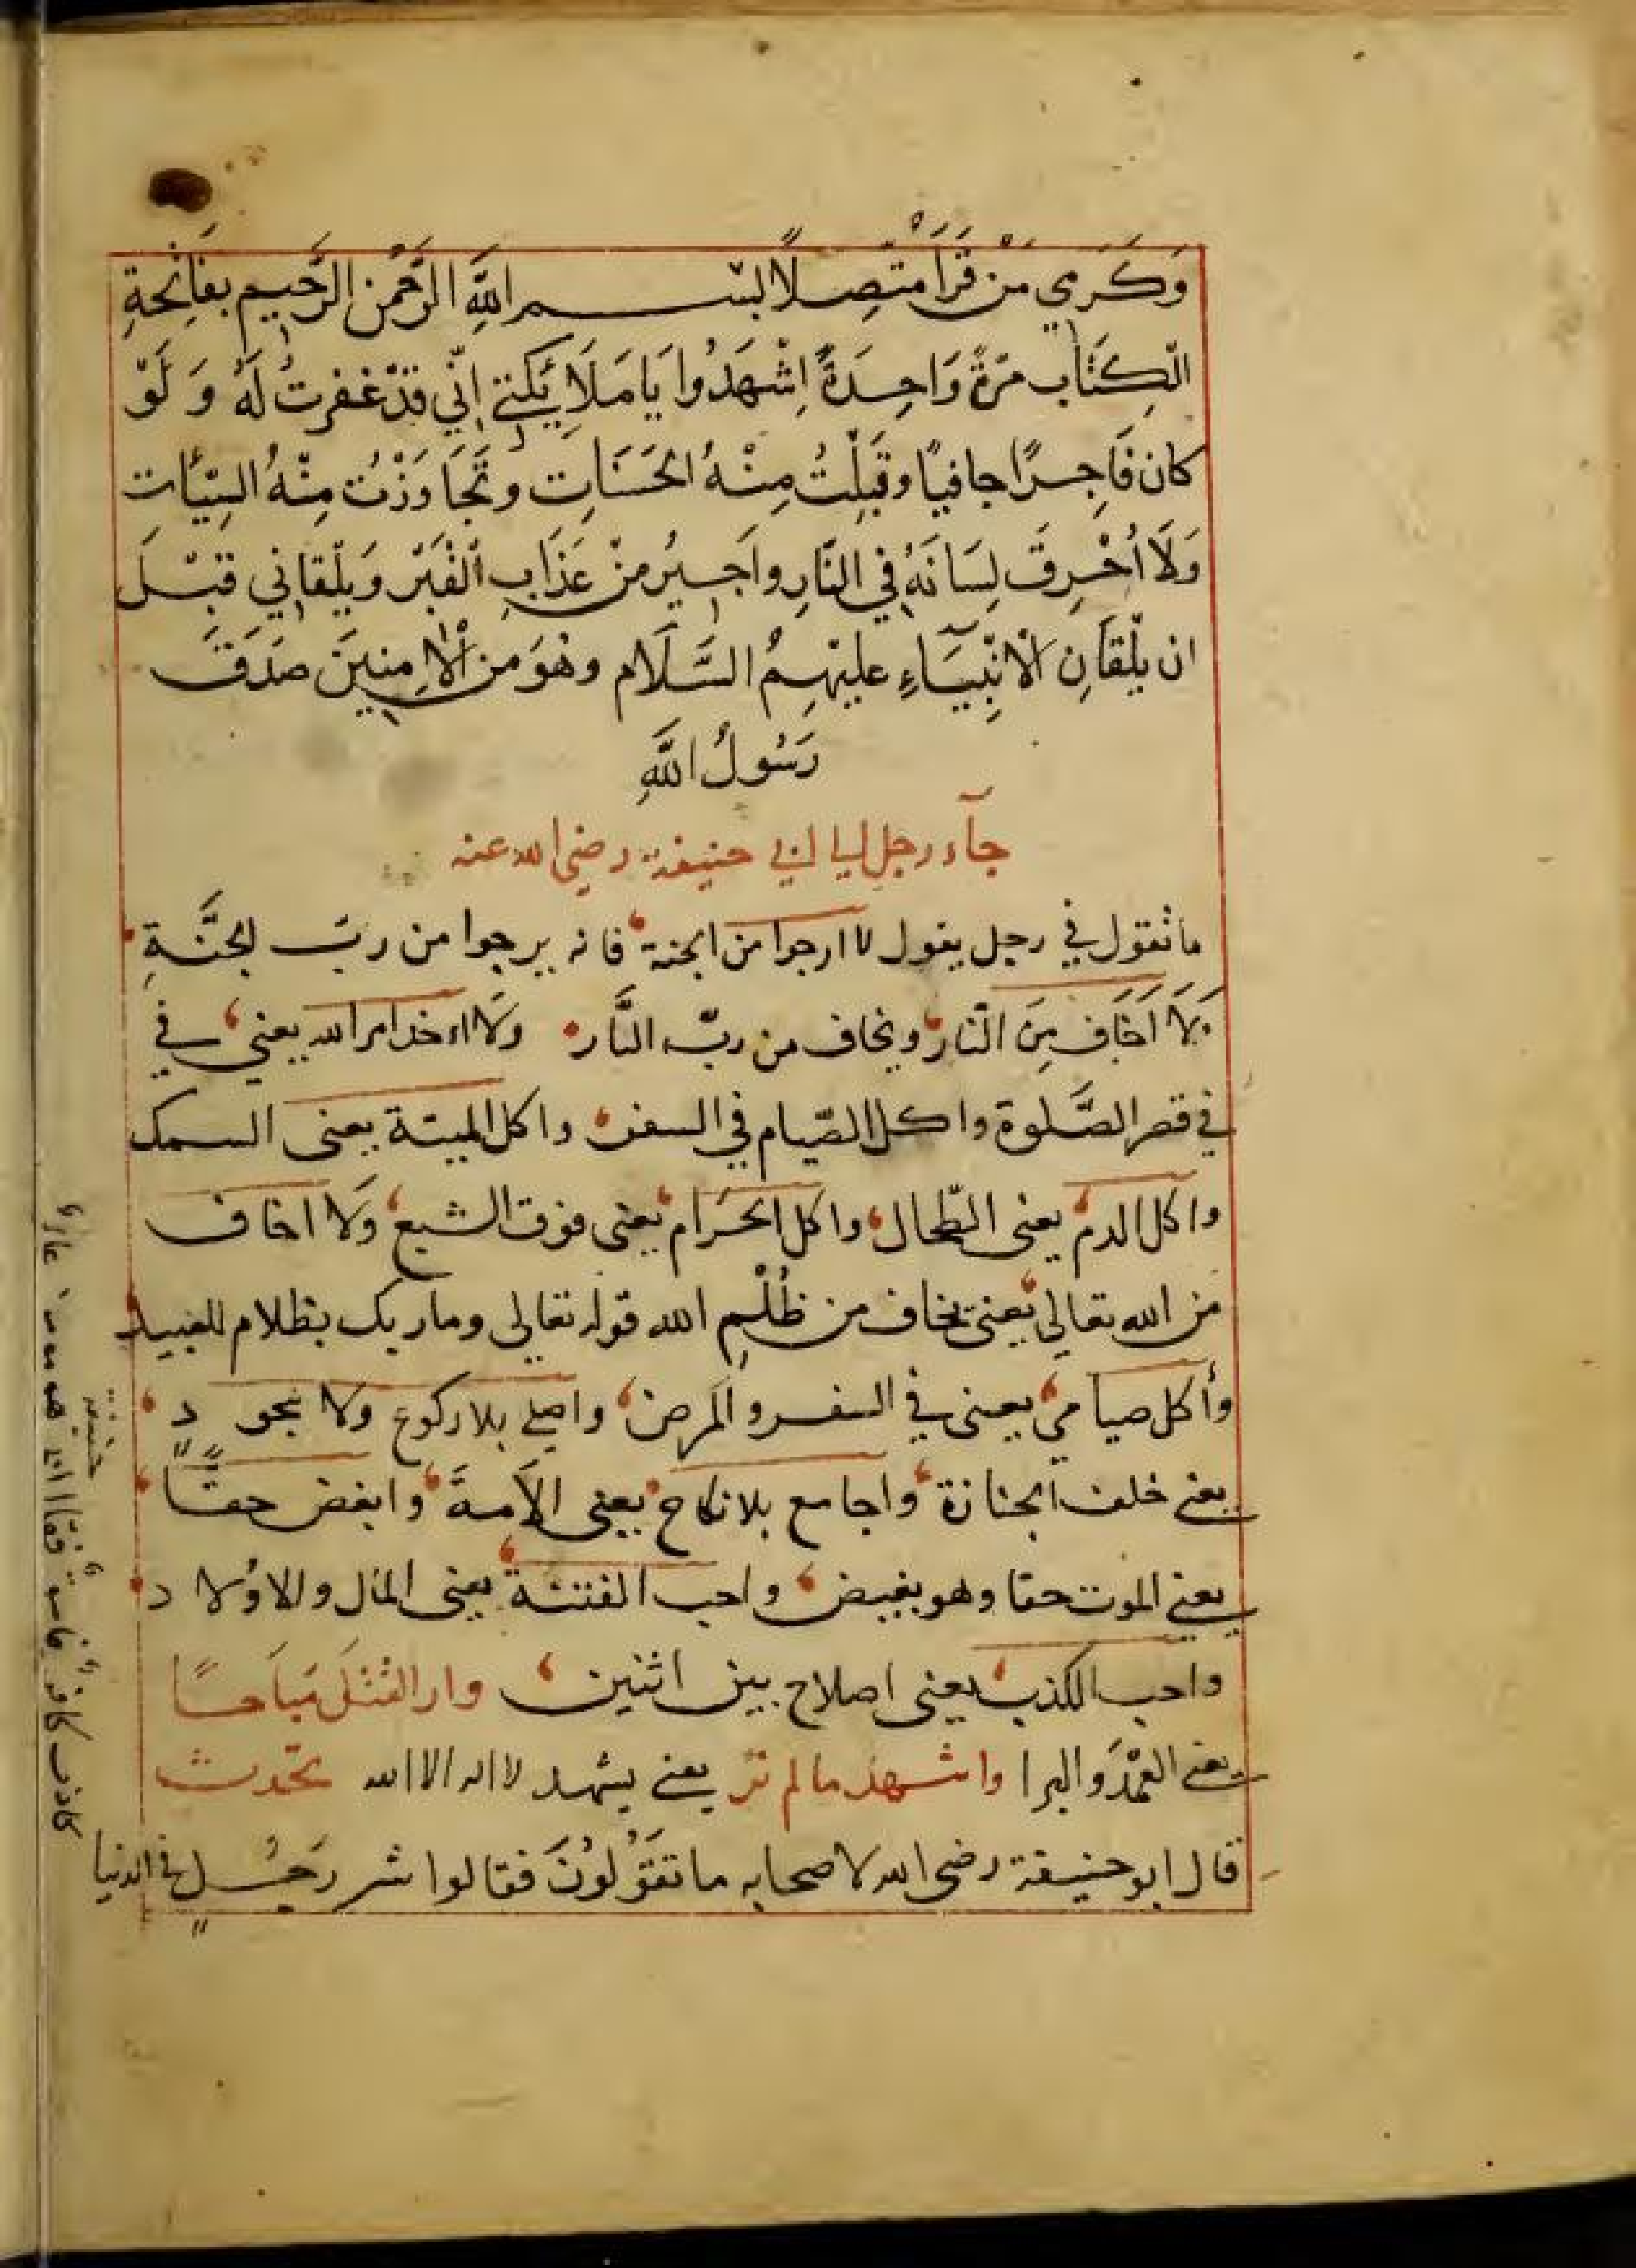 وَكَرَمي مَنْ قَرَأْ مُتَّصِلًا بسم اللهِ الرَّحْمٰن الرَّحِيم بفَاتِحةِ
الْكِتَاب مَرّةً وَاحِدَةً اِشْهَدُوا يَا مَلَائِكَتي اِنّي قدْ غفرتُ لَهُ وَ لَوْ
كان فَاجِرًا جافيًا وقَبِلْتُ مِنْهُ الحَسَنَاتِ وتَجَاوَزْتُ مِنْهُ السيّئات
وَلَا اُحْرِقَ لِسَانَهُ في النَّارِ واَجِيرُ مِنْ عَذَابِ الْقَبْر وَيلْقاني قبْلَ
ان يلْقَانِ الْانْبِيَاءِ عليْهِمُ السَّلَام وهُوَ من الْاٰمِنينَ صَدَقَ
رَسُولُ اللهِ
جآء رجل ابي حنيفة رضي الله عنه
ما تقول في رجل يقول لا ارجوا من الجنة فانه يرجوا من ربّ الجَنَّةِ
وَلَا اَخَاف مِنَ النّار ويخاف من ربّ النَّار ولا الله يعني في
في قصر الصَّلوة واكل الصّيام في السفر واكل الميتة يعنى السمك
واكل الدم يعنى الطّحال واكل الحَرام يعنى فوق الشبع وَلا اخاف
من الله تعالى يعني يخاف من ظُلْمِ الله قوله تعالى وما ربك بظلام للعبيد
وأكل صيامي يعنى في السفر والمَرض واصلي بلا ركوع ولا سجود
يعني خلف الجنازة واجامع بلا نكاح يعنى الأمةَ وابغض حقًّا
يعني الموت حقا وهو بغيض واحب الفتنة يعنى المال والاوْلاد
واحب الكذب يعنى اصلاح بين اثنين وار القتْل مبَاحًا
يعني العمْدَ والبرا واشهد ما لم تر يعني يشهد لا اله الا الله تحدث
قال ابو حنيفة رضى الله لاصحابه ما تقَوْلُونَ فقالوا شر رَجُلٍ في الدنيا
كاذب كافر فاسق فقال ابو حنيفة